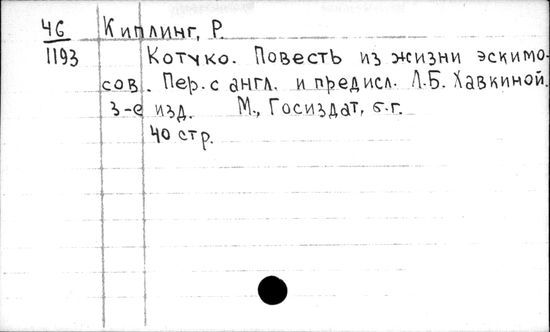 46 Киплинг, Р.
1193 Котуко. Повесть из жизни эскимо-
сов. Пер. с англ. и предисл. Л.Б. Хавкиной.
3-е изд. М., Госиздат, б.г.
40 стр.